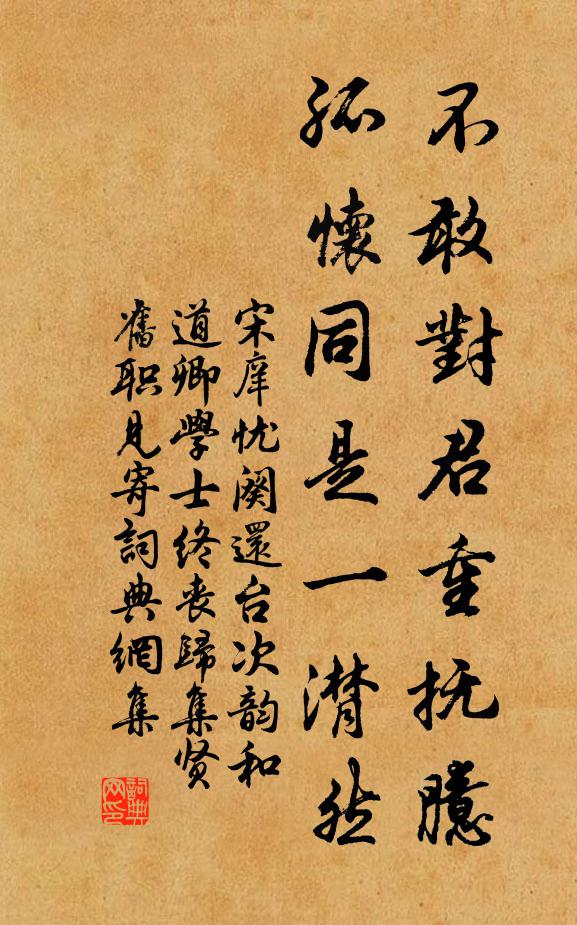 不敢對君重抚臆
孤懷同是一潸然
宋庠忧阕還台次韵和
道卿學士终丧歸集贤
舊职見寄詞典網集
詞典网印